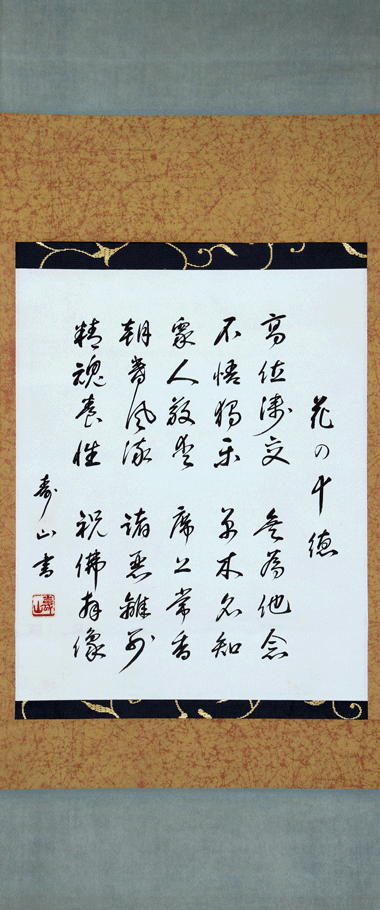 花の十徳
高位交 無為他念
不悟独楽 草木名知
衆人敬愛 席上常香
朝暮風流 諸悪離別
精魂養性 祝佛拝像
寿山書
壽山